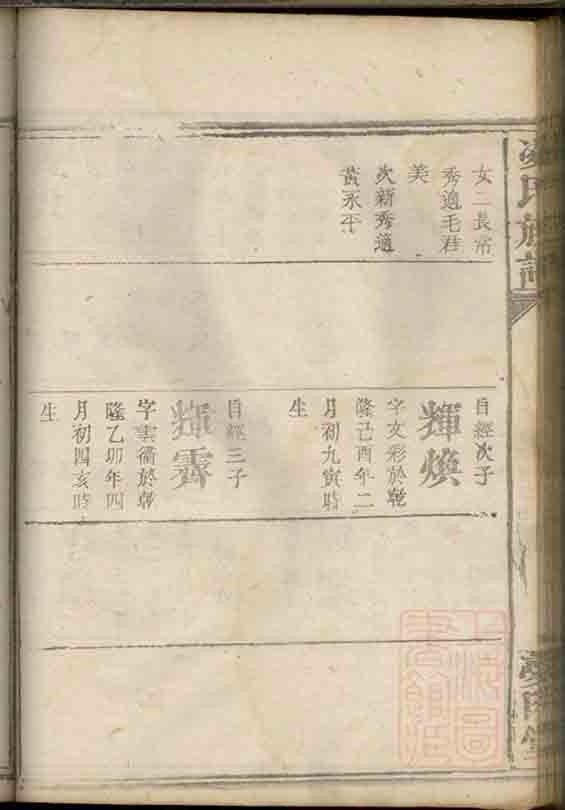 氏族譜
女二長常
秀適毛君
美
次新秀適
黃永平
自經次子
輝煥
字文彩於乾
隆己酉年二
月初九寅時
生
自經三子
輝霽
字雲衢於乾
隆乙卯年四
月初四亥時
生
上海圖書館藏